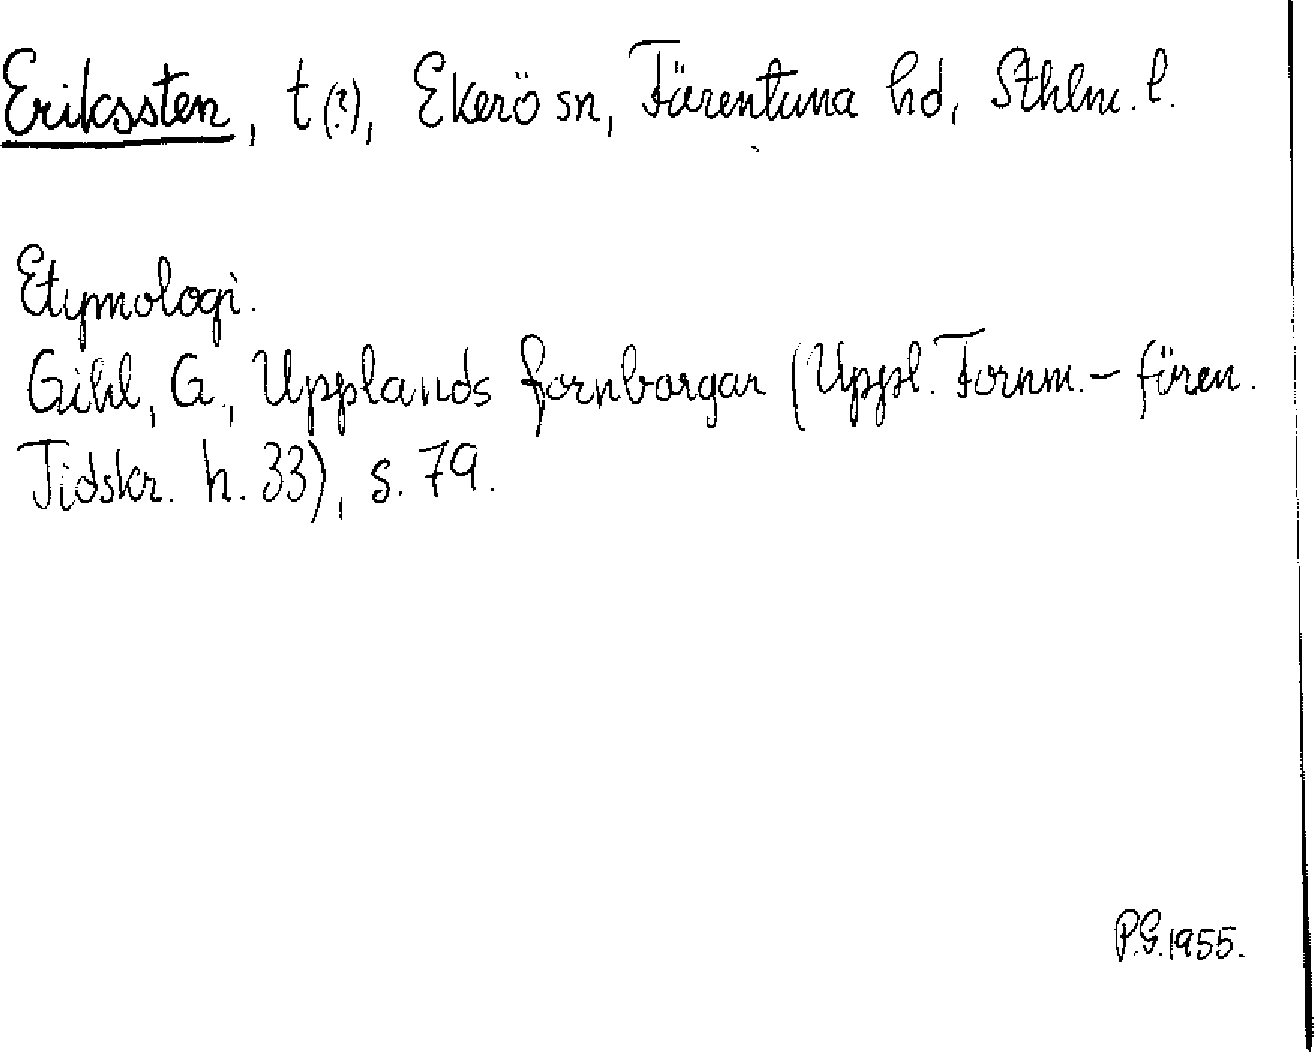 Erikssten, t(?), Ekerö sn, Färentuna hd, Sthlm. l.
Etymologi.
Gihl, G., Upplands fornborgar (Uppl. Fornm.-fören.
Tidskr. h. 33), s. 79.
P.G. 1955.